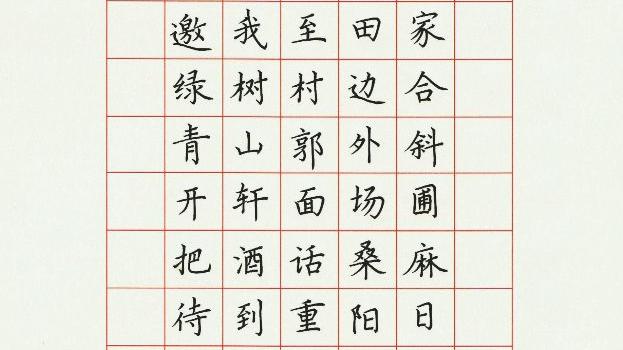 邀我至田家
绿树村边合
青山郭外斜
开轩面场圃
把酒话桑麻
待到重阳日